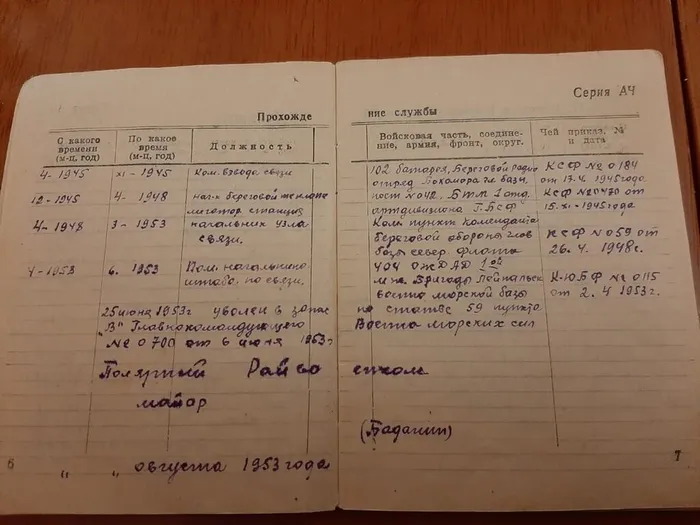 Серия АЧ
Прохожде
ние службы
С какого времени (м-ц, год)
По какое время (м-ц, год)
Должность
Войсковая часть, соедине-
ние, армия, фронт, округ.
Чей приказ, №
и дата
4-1945
XI-1945
Ком. взвода связи
102 батарея, Береговой радио
отряд Похмора гл базы,
КСФ № 0184
от 17.4.1945года
12-1945
4-1948
нач-к береговой
станции
пост № 042. 1 отд.
артдивизиона
КСФ № 0470 от
15.XI-1945года
4-1948
3-1953
начальник узла
связи.
Ком. пункт коменданта
береговой обороны глав
базы север. флота
КСФ № 059 от
26.4.1948г.
4-1953
6.1953
Пом. начальника
штаба по связи.
404
Бригады
военно морской базы
КЮБФ № 0115
от 2.4 1953г.
25 июня 1953г уволен в запас
по статье 59 пункта
"В" Главнокомандующего
Военно морских сил
№ 0700 от 6 июня 1953г
Полярный Райво
енком
майор
(Баданин)
" " августа 1953 года
6
7